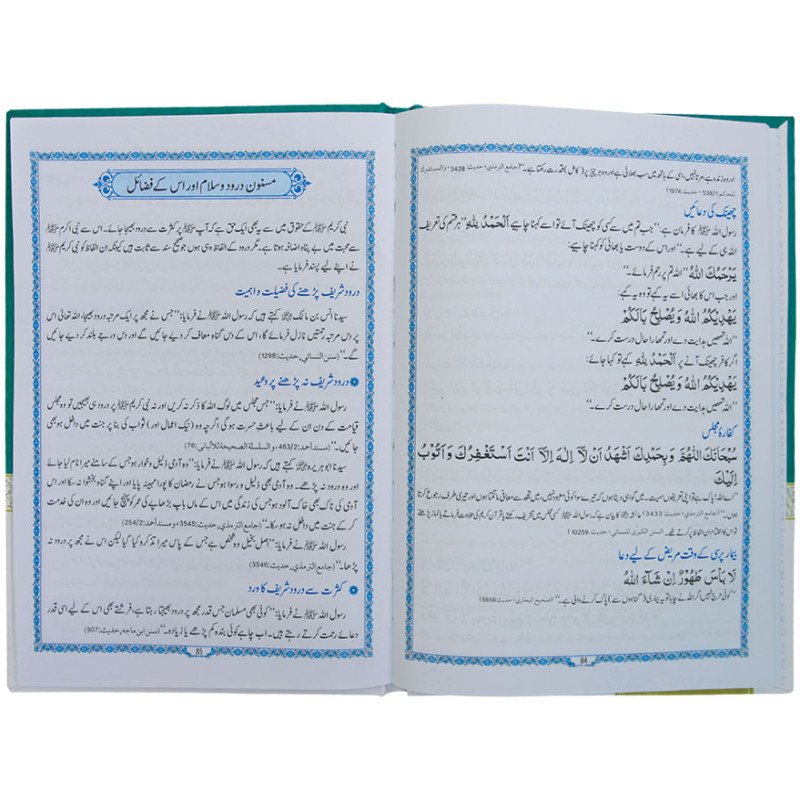 اور وہ زندہ ہے، مرتا نہیں، اسی کے ہاتھ میں سب بھلائی ہے اور وہ ہر چیز پر (کامل) قدرت رکھتا ہے۔“ (جامع الترمذي، حديث: 3428، والمستدرك
للحاكم: 538/1، حديث: 1974)
چھینک کی دعائیں
رسول اللہ ﷺ کا فرمان ہے: ”جب تم میں سے کسی کو چھینک آئے تو اسے کہنا چاہیے اَلْحَمْدُ لِلّٰهِ ”ہر قسم کی تعریف
اللہ ہی کے لیے ہے۔“ اور اس کے دوست یا بھائی کو کہنا چاہیے:
يَرْحَمُكَ اللّٰهُ ”اللہ تم پر رحم فرمائے۔“
اور جب اس کا بھائی اسے یہ کہے تو وہ یہ کہے:
يَهْدِيْكُمُ اللّٰهُ وَيُصْلِحُ بَالَكُمْ
”اللہ تمھیں ہدایت دے اور تمھارا حال درست کرے۔“
اگر کافر چھینک آنے پر اَلْحَمْدُ لِلّٰهِ کہے تو کہا جائے:
يَهْدِيْكُمُ اللّٰهُ وَيُصْلِحُ بَالَكُمْ
”اللہ تمھیں ہدایت دے اور تمھارا حال درست کرے۔“
کفارۂ مجلس
سُبْحَانَكَ اللّٰهُمَّ وَبِحَمْدِكَ اَشْهَدُ اَنْ لَّآ اِلٰهَ اِلَّآ اَنْتَ اَسْتَغْفِرُكَ وَاَتُوْبُ
اِلَيْكَ
”اے اللہ! پاک ہے تو اپنی تعریفوں سمیت، میں گواہی دیتا ہوں کہ تیرے سوا کوئی معبود نہیں، میں تجھ سے معافی مانگتا ہوں اور تیری طرف رجوع کرتا
ہوں۔“ (جامع الترمذي، حديث: 3433) عائشہ کا بیان ہے کہ رسول اللہ ﷺ کسی مجلس میں تشریف رکھتے یا قرآن کریم کی تلاوت فرماتے یا نماز پڑھتے
تو اس کا اختتام ان الفاظ پر کرتے تھے۔ (السنن الكبرى للنسائي، حديث: 10259)
بیمار پرسی کے وقت مریض کے لیے دعا
لَا بَاْسَ طَهُوْرٌ اِنْ شَآءَ اللّٰهُ
”کوئی حرج نہیں اگر اللہ نے چاہا تو یہ بیماری (گناہوں سے) پاک کرنے والی ہے۔“ (صحيح البخاري، حديث: 5656)
84
مسنون درود و سلام اور اس کے فضائل
نبی کریم ﷺ کے حقوق میں سے یہ بھی ایک حق ہے کہ آپ ﷺ پر کثرت سے درود بھیجا جائے۔ اس سے نبی اکرم ﷺ
سے محبت میں بے پناہ اضافہ ہوتا ہے۔ مگر درود کے الفاظ وہی ہوں جو صحیح سند سے ثابت ہیں کیونکہ ان الفاظ کو نبی کریم ﷺ
نے اپنے لیے پسند فرمایا ہے۔
درود شریف پڑھنے کی فضیلت و اہمیت
سیدنا انس بن مالک کہتے ہیں کہ رسول اللہ ﷺ نے فرمایا: ”جس نے مجھ پر ایک مرتبہ درود بھیجا، اللہ تعالیٰ اس
پر دس مرتبہ رحمتیں نازل فرمائے گا، اس کے دس گناہ معاف کر دیے جائیں گے اور دس درجے بلند کر دیے جائیں
گے۔“ (سنن النسائي، حديث: 1298)
درود شریف نہ پڑھنے پر وعید
رسول اللہ ﷺ نے فرمایا: ”جس مجلس میں لوگ اللہ کا ذکر نہ کریں اور نہ نبی کریم ﷺ پر درود ہی بھیجیں تو وہ مجلس
قیامت کے دن ان کے لیے باعث حسرت ہو گی اگرچہ وہ (نیک اعمال اور) ثواب کی بنا پر جنت میں داخل ہو بھی
جائیں۔“ (مسند أحمد: 463/2، والسلسلة الصحيحة للألباني: 76)
سیدنا ابو ہریرہ کہتے ہیں کہ رسول اللہ ﷺ نے فرمایا: ”وہ آدمی ذلیل و خوار ہو جس کے سامنے میرا نام لیا جائے
اور وہ درود نہ پڑھے۔ وہ آدمی بھی ذلیل و رسوا ہو جس نے رمضان کا پورا مہینہ پایا اور اپنے گناہ بخشوا نہ سکا اور اس
آدمی کی ناک بھی خاک آلود ہو جس کی زندگی میں اس کے ماں باپ بڑھاپے کی عمر کو پہنچ جائیں اور وہ ان کی خدمت
کر کے جنت میں داخل نہ ہو سکا۔“ (جامع الترمذي، حديث: 3545، و مسند أحمد: 254/2)
رسول اللہ ﷺ نے فرمایا: ”اصل بخیل وہ شخص ہے جس کے پاس میرا تذکرہ کیا گیا لیکن اس نے مجھ پر درود نہ
پڑھا۔“ (جامع الترمذي، حديث: 3546)
کثرت سے درود شریف کا ورد
رسول اللہ ﷺ نے فرمایا: ”کوئی بھی مسلمان جس قدر مجھ پر درود بھیجتا رہتا ہے، فرشتے بھی اس کے لیے اسی قدر
دعائے رحمت کرتے رہتے ہیں۔ اب چاہے کوئی بندہ کم پڑھے یا زیادہ۔“ (سنن ابن ماجه، حديث: 907)
85